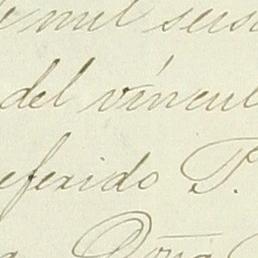 de mil seis
del víncul
eferido P.
a Doña